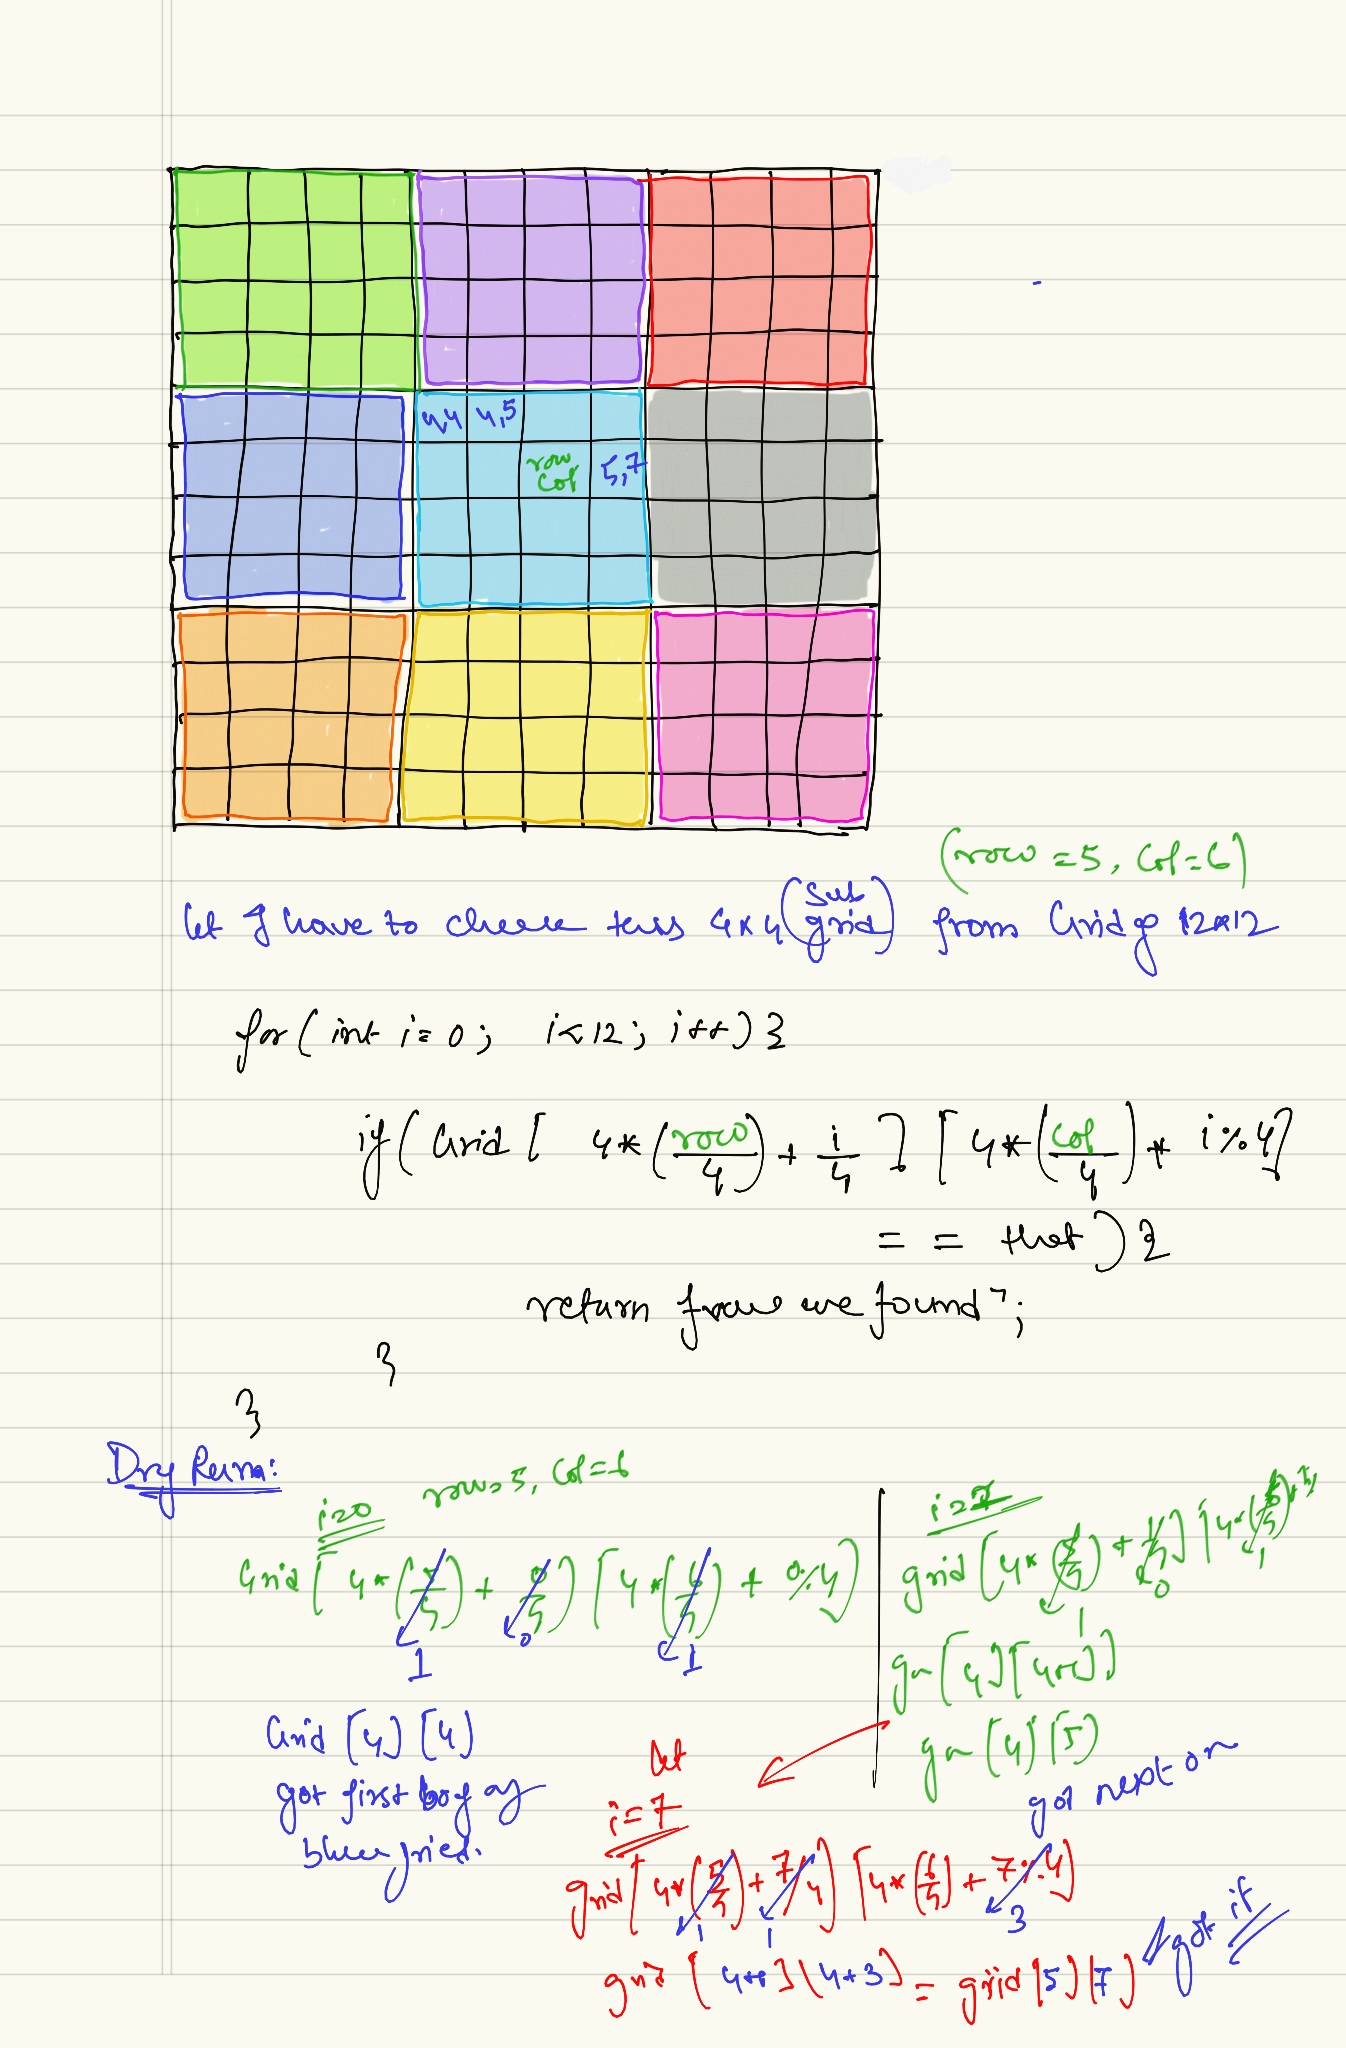 4,4 4,5
row
col 5,7
(row = 5, Col = 6)
let I have to check this 4x4 (sub grid) from Grid of 12x12
for ( int i = 0 ; i < 12 ; i++ ) {
if ( Grid [ 4 * (row/4) + i/4 ] [ 4 * (col/4) + i % 4 ]
= = that ) {
return from we found" ;
}
}
Dry Run:
row = 5, Col = 6
i=0
Grid [ 4 * (5/4) + 0/4 ] [ 4 * (6/4) + 0 % 4 ]
1 0 1
Grid [4] [4]
got first box of
blue grid.
grid [ 4 * (5/4) + 1/4 ] [ 4 *
1 0 1
gr [4] [4+1]
gr [4] [5]
got next on
let
i = 7
grid [ 4 * (5/4) + 7/4 ] [ 4 * (6/4) + 7 % 4 ]
1 1 3
grid [ 4+1 ] [ 4+3 ] = grid [5] [7] got it